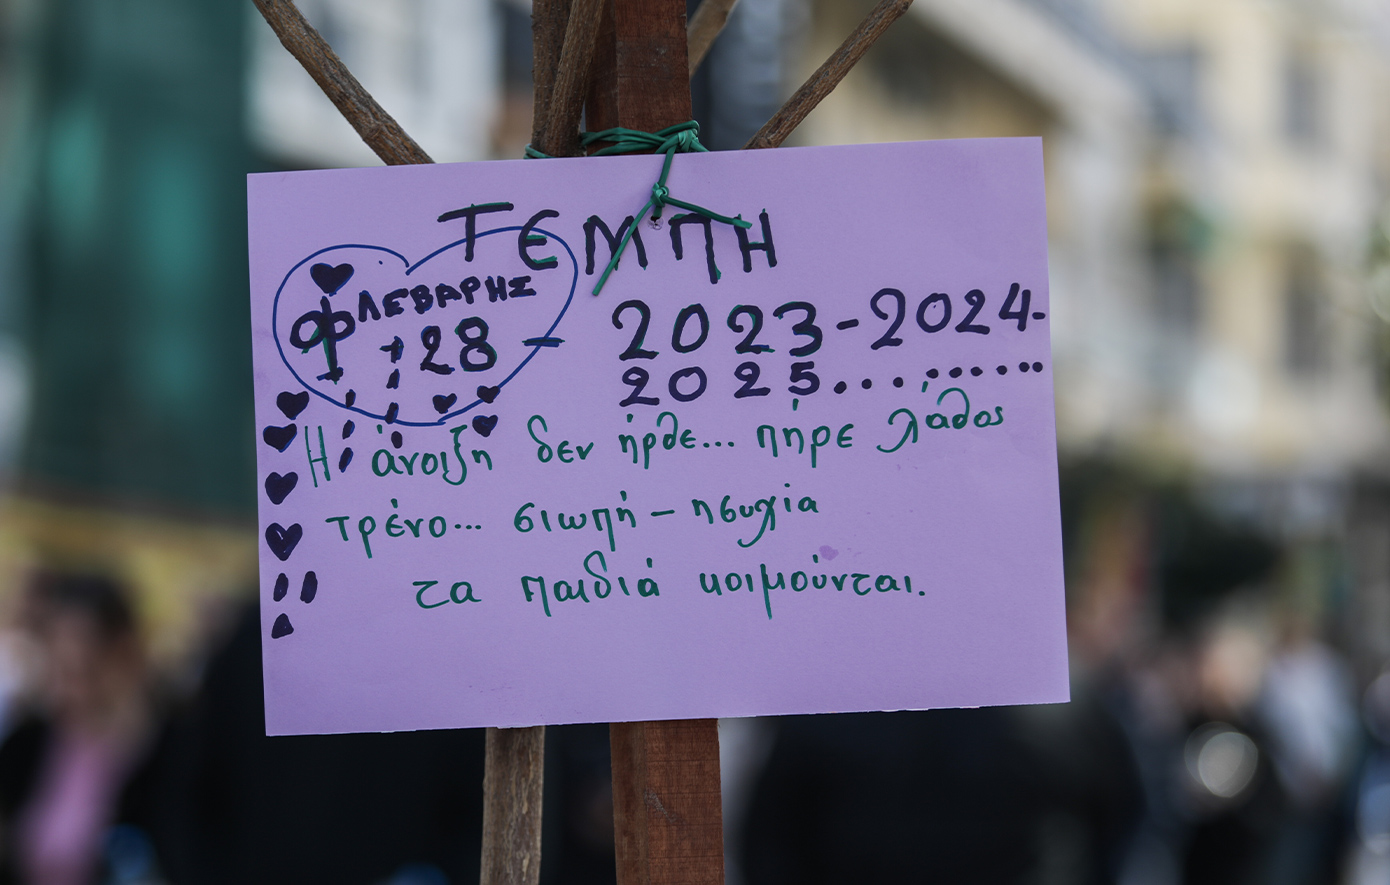 ΤΕΜΠΗ
ΦΛΕΒΑΡΗΣ
28 - 2023-2024-
2025... .......
Η άνοιξη δεν ήρθε... πήρε λάθος
τρένο... σιωπή - ησυχία
τα παιδιά κοιμούνται.